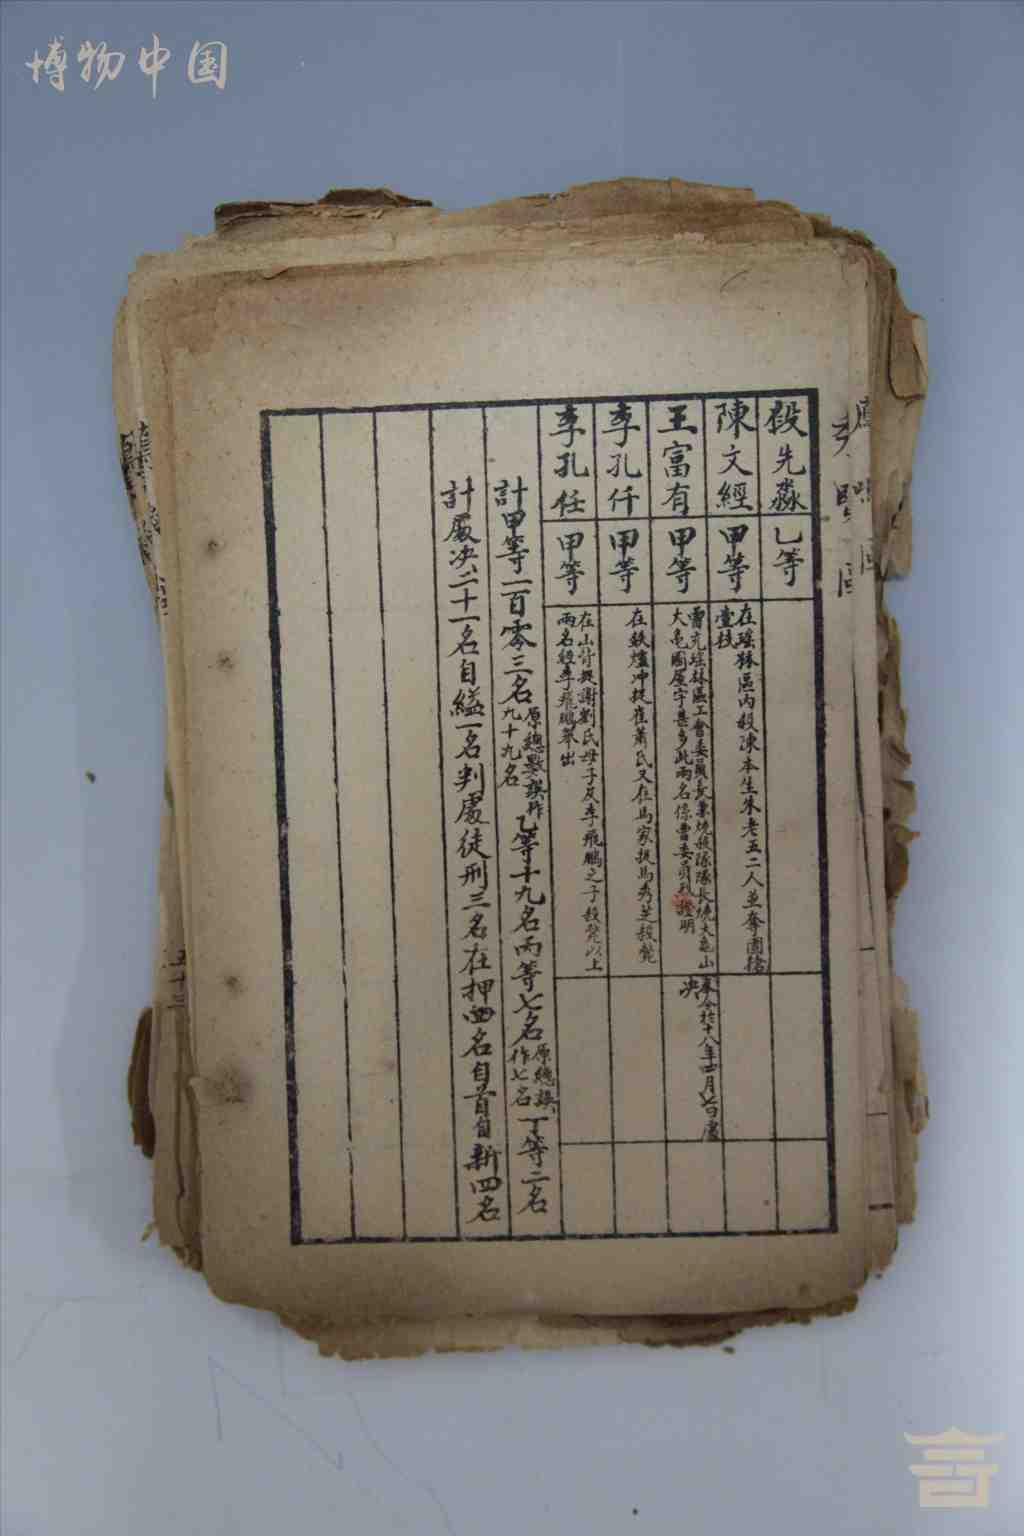 博物中国
段先淼 乙等
陳文經 甲等 在瑤林區内殺陳本生朱老五二人並奪團搶
壹枝
王富有 甲等 曹充瑤林區工會委員長兼燒殺隊隊長燒大亀山
大亀圖屋宇甚多此兩名係曹委員 證明 奉令於十八年四月七日處
决
李孔仟 甲等 在鉄爐冲捉崔蕭氏又在馬家捉馬秀芝殺斃
李孔任 甲等 在山 捉謝劉氏母子及李飛鵬之子殺斃以上
兩名經李飛鵬舉出
計甲等一百零三名原總數誤作九十九名乙等十九名丙等七名原總誤作七名丁等二名
計處决二十一名自縊一名判處徒刑三名在押四名自首自新四名
五十三